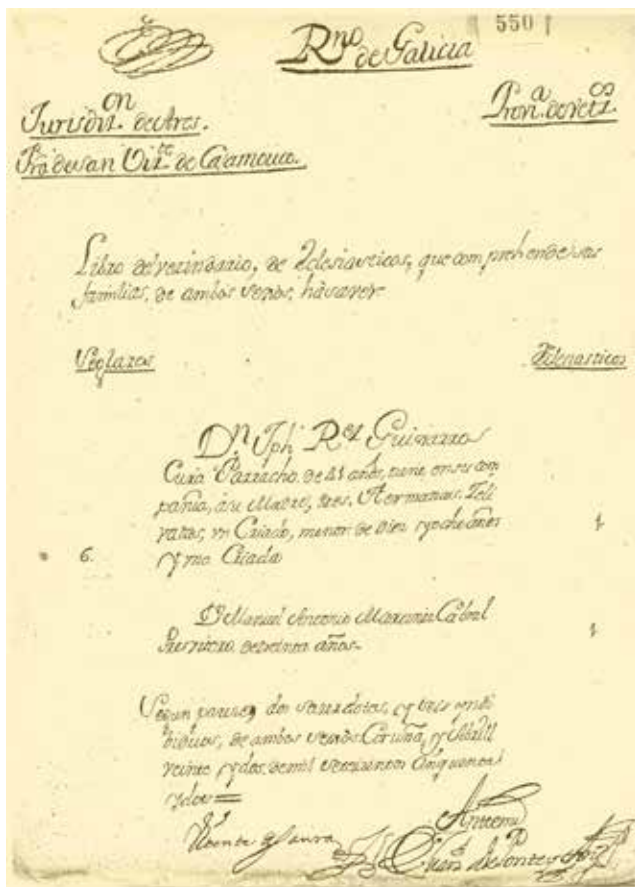 550
Rno de Galicia
Jurisdn. de Ares.
Prona. de
Fra. de san Vizte. de Caamouco.
Libro del vezindario, de Eclesiasticos, que comprehende sus
familias, de ambos sexos, há saver
Seglares
Eclesiasticos
Dn. Jph. Rez. Guinarro
Cura Parrocho de 41 años, tiene en su com
pañia, á su Madre, tres Hermanas
vn Criado, menor de diez y ocho años
6.
1
y vna Criada
Dn. Manuel Antonio Martinez Cabral
1
Presvitero de treinta años.
Segun parece, dos sacerdotes, y
de ambos sexos Coruña, y Abril
veinte y dos de mil setezientos cinquenta
y dos =
Antemi
Vicente